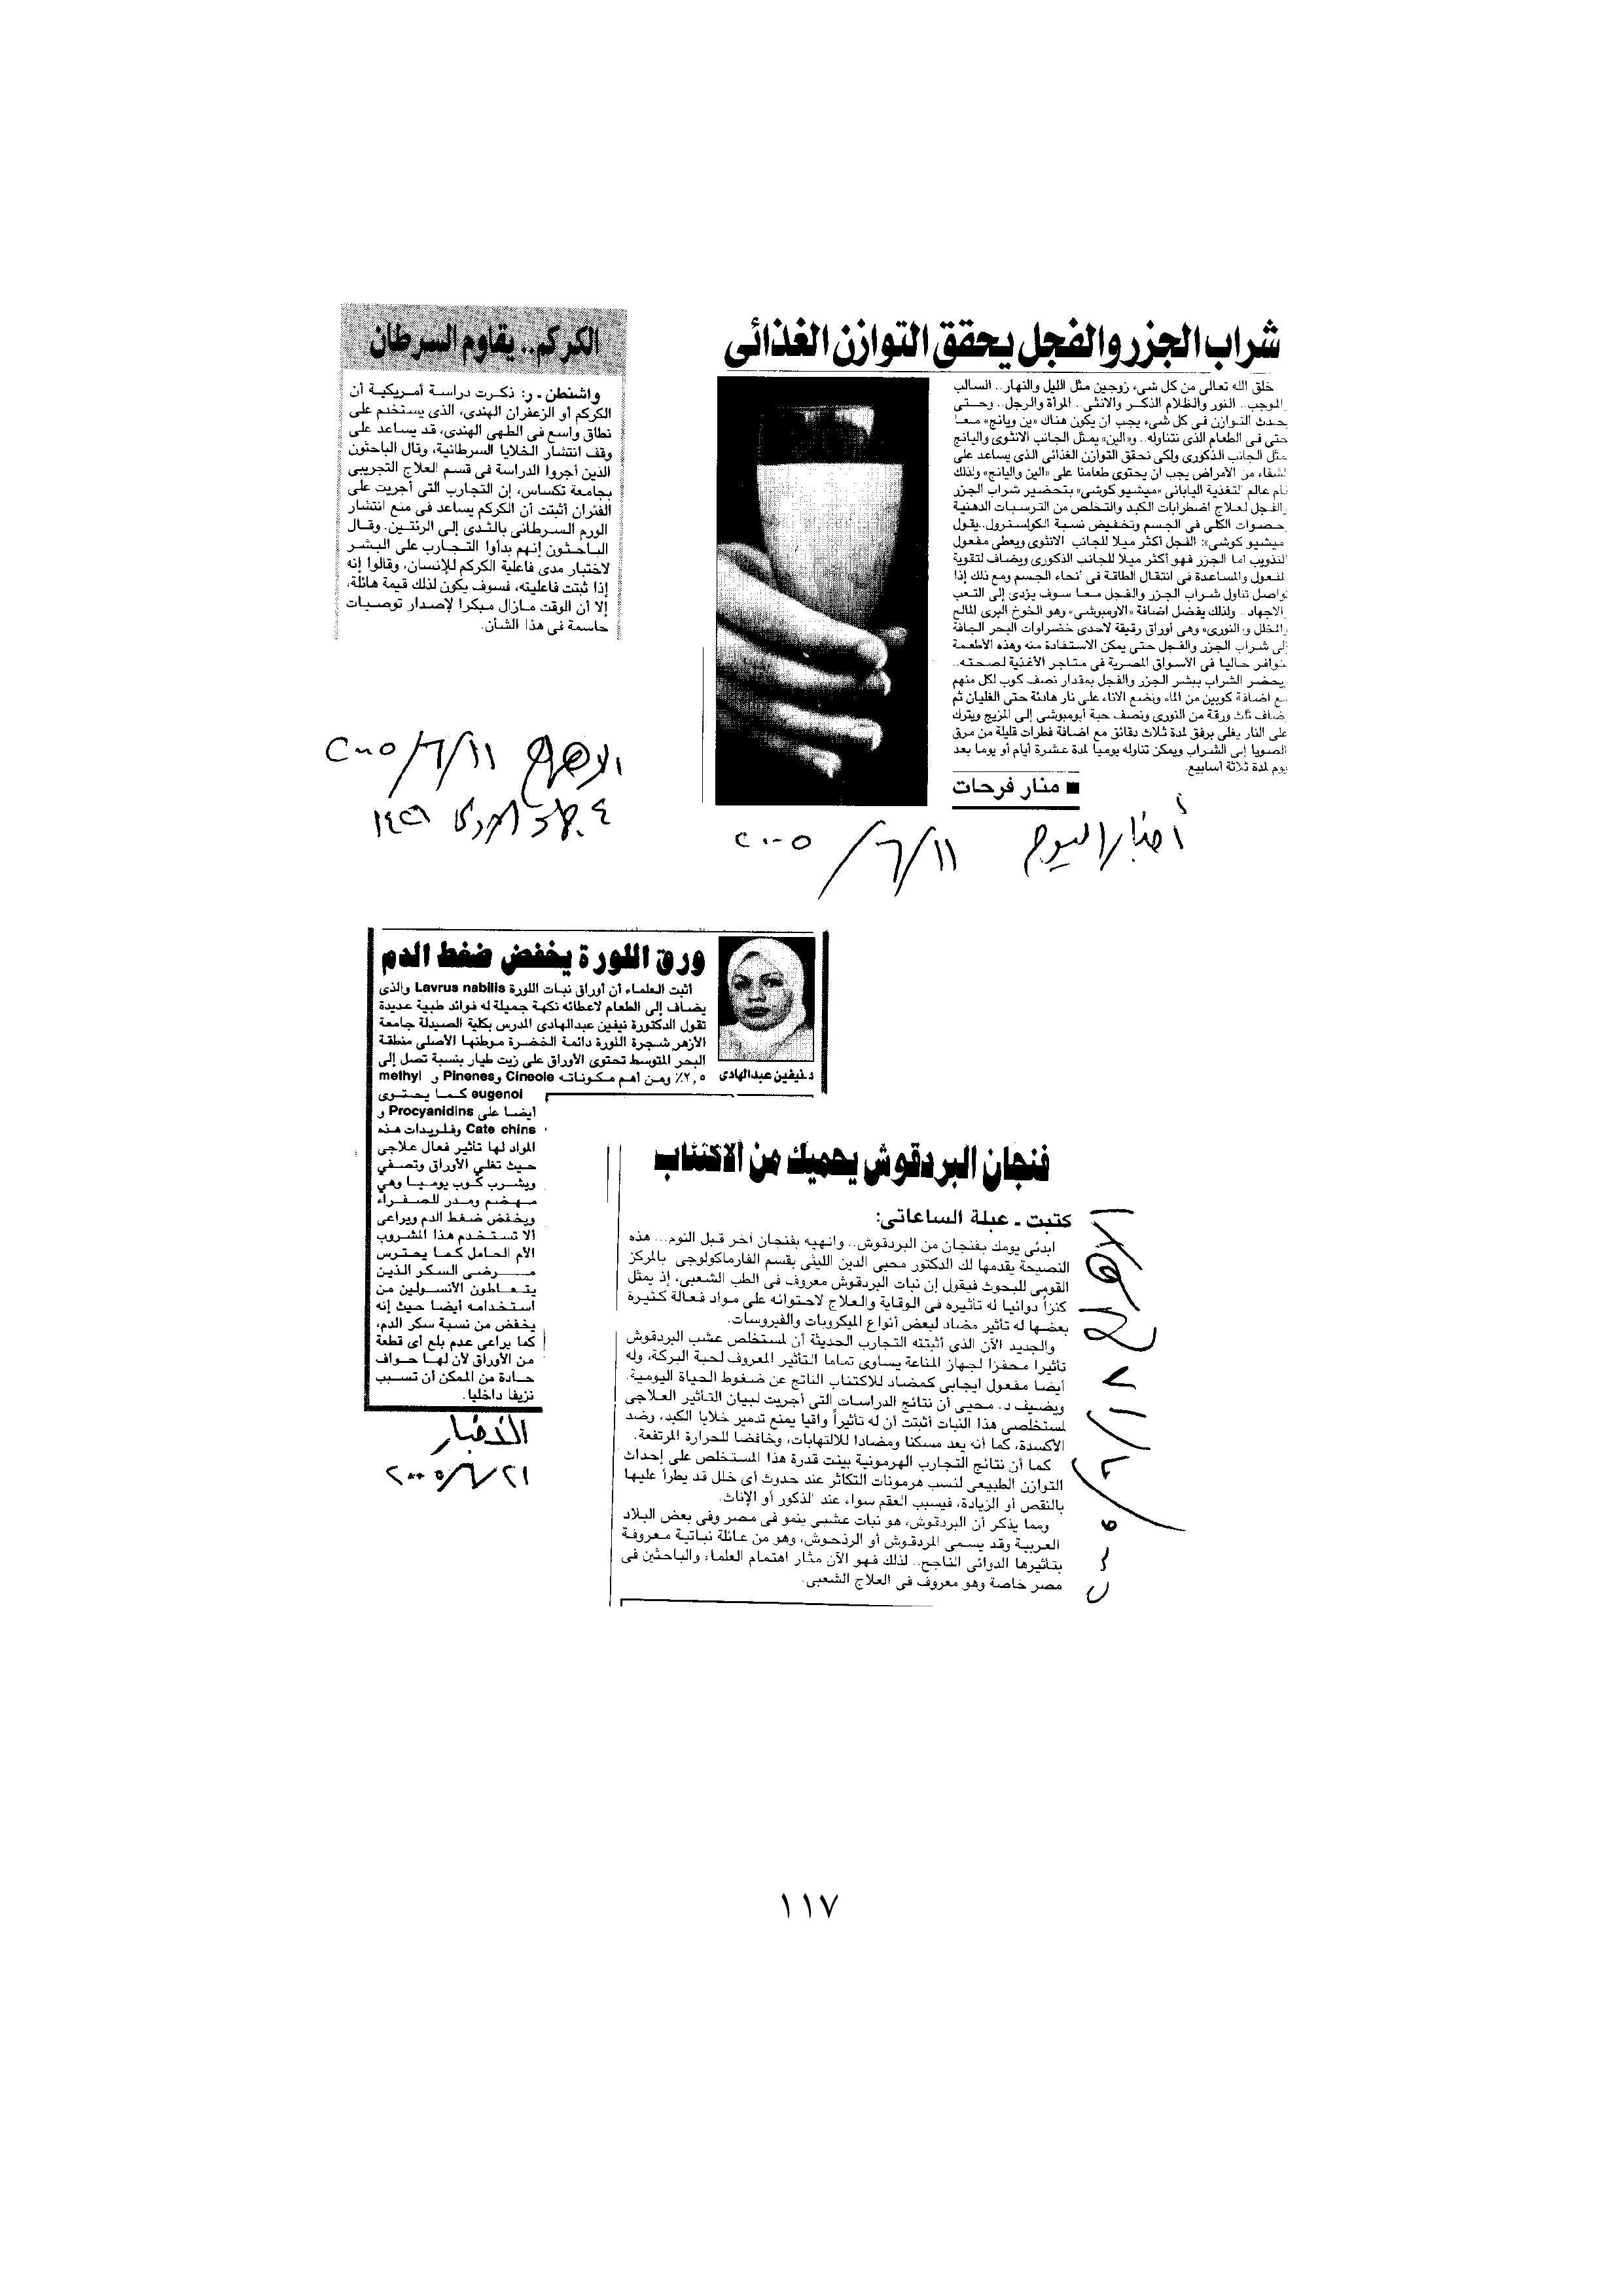 شراب الجزر والفجل يحقق التوازن الغذائى
خلق الله تعالى من كل شىء زوجين مثل الليل والنهار.. السالب
الموجب.. النور والظلام الذكر والانثى.. المرأة والرجل.. وحتى
يحدث التوازن فى كل شىء يجب ان يكون هناك «ين ويانج» معا
حتى فى الطعام الذى نتناوله.. و«الين» يمثل الجانب الانثوى واليانج
مثل الجانب الذكورى ولكى نحقق التوازن الغذائى الذى يساعد على
لشفاء من الأمراض يجب ان يحتوى طعامنا على «الين واليانج» ولذلك
ام عالم التغذية اليابانى «ميشيو كوشى» بتحضير شراب الجزر
الفجل لعلاج اضطرابات الكبد والتخلص من الترسبات الدهنية
حصوات الكلى فى الجسم وتخفيض نسبة الكولسترول.. يقول
ميشيو كوشى»: الفجل أكثر ميلا للجانب الانثوى ويعطى مفعول
لتذويب اما الجزر فهو أكثر ميلا للجانب الذكورى ويضاف لتقوية
لمفعول والمساعدة فى انتقال الطاقة فى انحاء الجسم ومع ذلك إذا
تواصل تناول شراب الجزر والفجل معا سوف يؤدى إلى التعب
الاجهاد.. ولذلك يفضل اضافة «الاومبوشى» وهو الخوخ البرى المالح
المخلل و«النورى» وهى أوراق رقيقة لاحدى خضراوات البحر الجافة
إلى شراب الجزر والفجل حتى يمكن الاستفادة منه وهذه الأطعمة
توافر حاليا فى الأسواق المصرية فى متاجر الأغذية لصحته..
يحضر الشراب ببشر الجزر والفجل بمقدار نصف كوب لكل منهم
مع اضافة كوبين من الماء ونضع الاناء على نار هادئة حتى الغليان ثم
ضاف ثلث ورقة من النورى ونصف حبة أبومبوشى إلى المزيج ويترك
على النار يغلى برفق لمدة ثلاث دقائق مع اضافة قطرات قليلة من مرق
الصويا إلى الشراب ويمكن تناوله يوميا لمدة عشرة أيام أو يوما بعد
يوم لمدة ثلاثة أسابيع.
■ منار فرحات
أخبار اليوم ١١/٦/٢٠٠٥
الكركم.. يقاوم السرطان
واشنطن ـ ر: ذكرت دراسة أمريكية أن
الكركم أو الزعفران الهندى، الذى يستخدم على
نطاق واسع فى الطهى الهندى، قد يساعد على
وقف انتشار الخلايا السرطانية، وقال الباحثون
الذين أجروا الدراسة فى قسم العلاج التجريبى
بجامعة تكساس، إن التجارب التى أجريت على
الفئران أثبتت أن الكركم يساعد فى منع انتشار
الورم السرطانى بالثدى إلى الرئتين. وقال
الباحثون إنهم بدأوا التجارب على البشر
لاختبار مدى فاعلية الكركم للإنسان، وقالوا إنه
إذا ثبتت فاعليته، فسوف يكون لذلك قيمة هائلة،
إلا أن الوقت مازال مبكرا لإصدار توصيات
حاسمة فى هذا الشأن.
الاهرام ١١/٦/٢٠٠٥
٤ جماد الأولى ١٤٢٦
ورق اللورة يخفض ضغط الدم
أثبت العلماء أن أوراق نبات اللورة Lavrus nabilis والذى
يضاف إلى الطعام لاعطائه نكهة جميلة له فوائد طبية عديدة
تقول الدكتورة نيفين عبدالهادى المدرس بكلية الصيدلة جامعة
الأزهر شجرة اللورة دائمة الخضرة موطنها الأصلى منطقة
البحر المتوسط تحتوى الأوراق على زيت طيار بنسبة تصل إلى
٢,٥٪ ومن أهم مكوناته Cineole وPinenes و methyl
د.نيفين عبدالهادى
eugenol كما يحتوى
أيضا على Procyanidins و
Cate chins وفلريدات هذه
المواد لها تأثير فعال علاجى
حيث تغلي الأوراق وتصفي
ويشرب كوب يوميا وهي
مهضم ومدر للصفراء
ويخفض ضغط الدم ويراعى
ألا تستخدم هذا المشروب
الأم الحامل كما يحترس
مرضى السكر الذين
يتعاطون الأنسولين من
استخدامه أيضا حيث إنه
يخفض من نسبة سكر الدم،
كما يراعى عدم بلع أى قطعة
من الأوراق لأن لها حواف
حادة من الممكن أن تسبب
نزيفا داخليا.
الأخبار
٢١/٦/٢٠٠٥
فنجان البردقوش يحميك من الاكتئاب
كتبت ـ عبلة الساعاتى:
ابدئى يومك بفنجان من البردقوش.. وانهيه بفنجان آخر قبل النوم... هذه
النصيحة يقدمها لك الدكتور محيى الدين الليثى بقسم الفارماكولوجى بالمركز
القومى للبحوث فيقول إن نبات البردقوش معروف فى الطب الشعبى، إذ يمثل
كنزاً دوائيا له تأثيره فى الوقاية والعلاج لاحتوائه على مواد فعالة كثيرة
بعضها له تأثير مضاد لبعض أنواع الميكروبات والفيروسات.
والجديد الآن الذى أثبتته التجارب الحديثة أن لمستخلص عشب البردقوش
تأثيرا محفزا لجهاز المناعة يساوى تماما التأثير المعروف لحبة البركة، وله
أيضا مفعول ايجابى كمضاد للاكتئاب الناتج عن ضغوط الحياة اليومية.
ويضيف د. محيى أن نتائج الدراسات التى أجريت لبيان التأثير العلاجى
لمستخلصى هذا النبات أثبتت أن له تأثيراً واقيا يمنع تدمير خلايا الكبد، وضد
الأكسدة، كما أنه يعد مسكنا ومضادا للالتهابات، وخافضا للحرارة المرتفعة.
كما أن نتائج التجارب الهرمونية بينت قدرة هذا المستخلص على إحداث
التوازن الطبيعى لنسب هرمونات التكاثر عند حدوث أى خلل قد يطرأ عليها
بالنقص أو الزيادة، فيسبب العقم سواء عند الذكور أو الإناث.
ومما يذكر أن البردقوش، هو نبات عشبى ينمو فى مصر وفى بعض البلاد
العربية وقد يسمى المردقوش أو الرذحوش، وهو من عائلة نباتية معروفة
بتأثيرها الدوائى الناجح.. لذلك فهو الآن مثار اهتمام العلماء والباحثين فى
مصر خاصة وهو معروف فى العلاج الشعبى.
١١٧